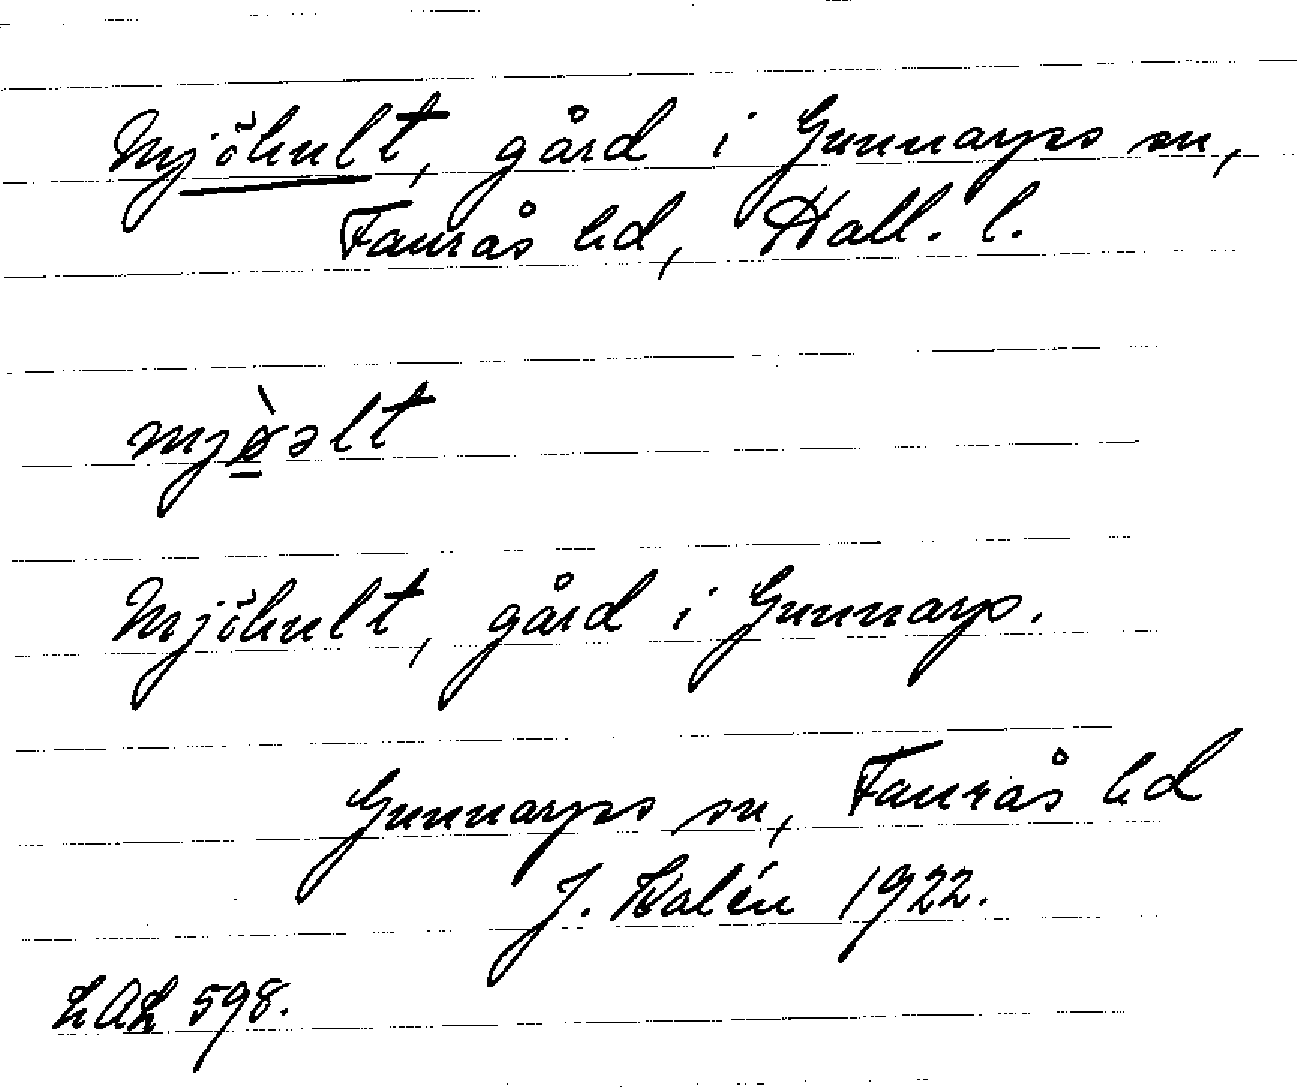 Mjöhult, gård i Gunnarps sn,
Faurås hd, Hall. l.
mjø̲̀əlt
Mjöhult, gård i Gunnarp.
Gunnarps sn, Faurås hd
J. Kalén 1922.
LAL 598.